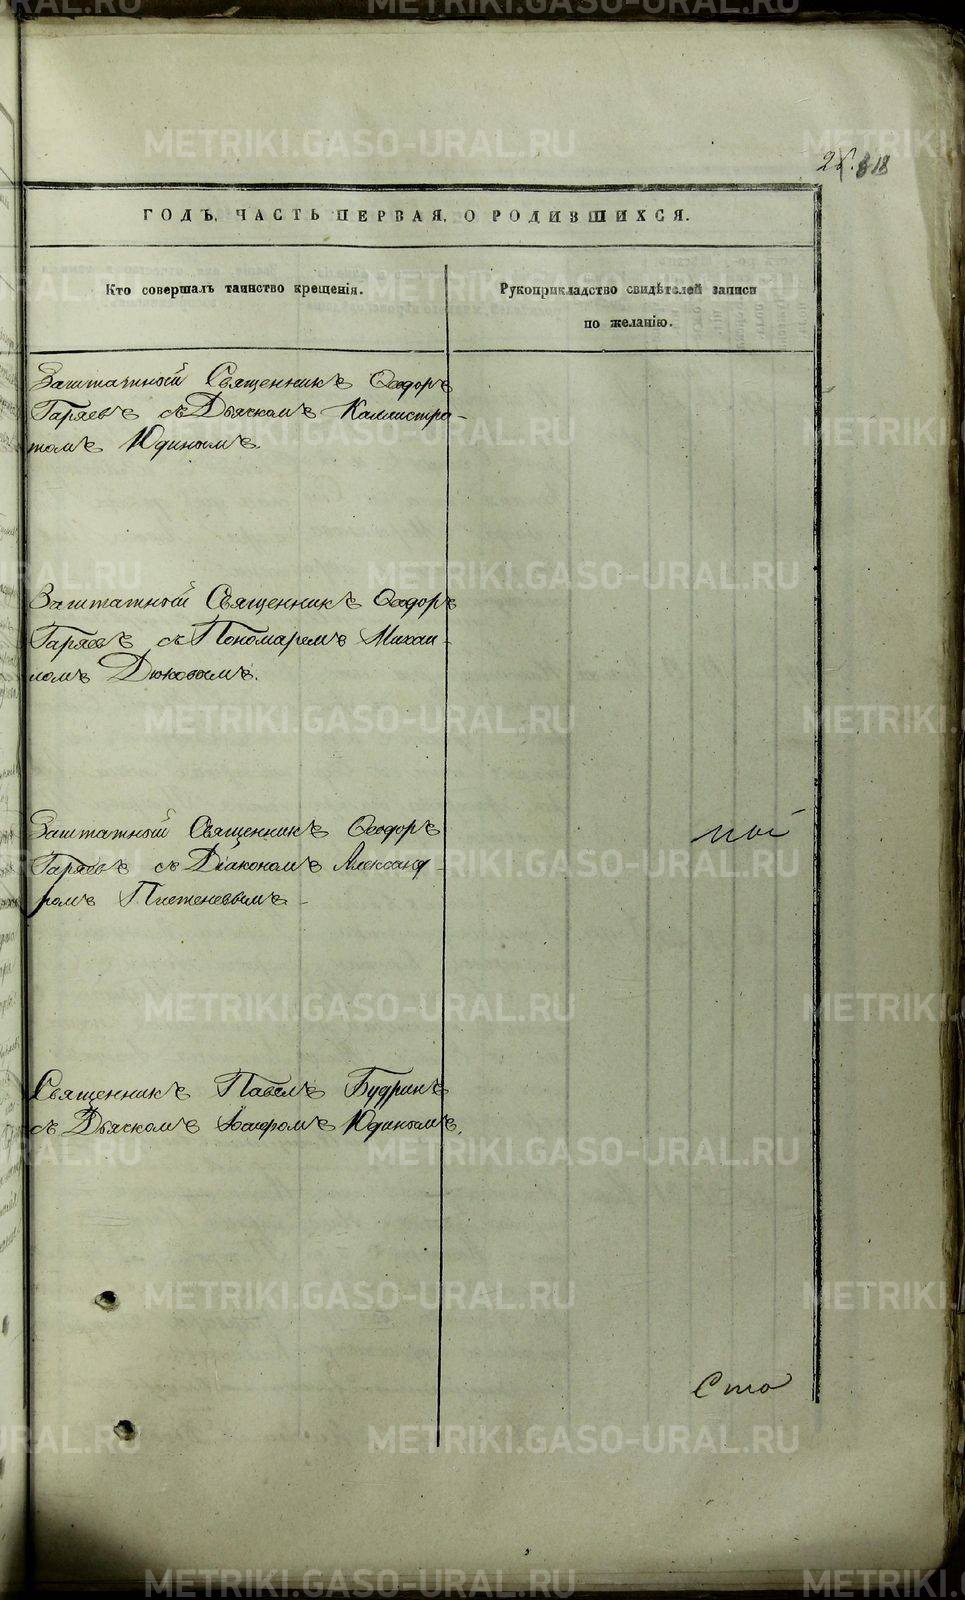 ГОДЪ, ЧАСТЬ ПЕРВАЯ, О РОДИВШИХСЯ.
Кто совершалъ таинство крещенія.
Рукоприкладство свидѣтелей записи
по желанію.
Заштатный Священникъ Ѳеодоръ
Гаряевъ съ Дьячкомъ Каллистра-
томъ Юдинымъ.
Заштатный Священникъ Ѳеодоръ
Гаряевъ съ Пономаремъ Михаи-
ломъ Дюковымъ.
Заштатный Священникъ Ѳеодоръ
Гаряевъ съ Діакономъ Александ-
ромъ Плетеневымъ
ной
Священникъ Павелъ Будринъ
съ Дьячкомъ Юдинымъ.
Сто
METRIKI.GASO-URAL.RU